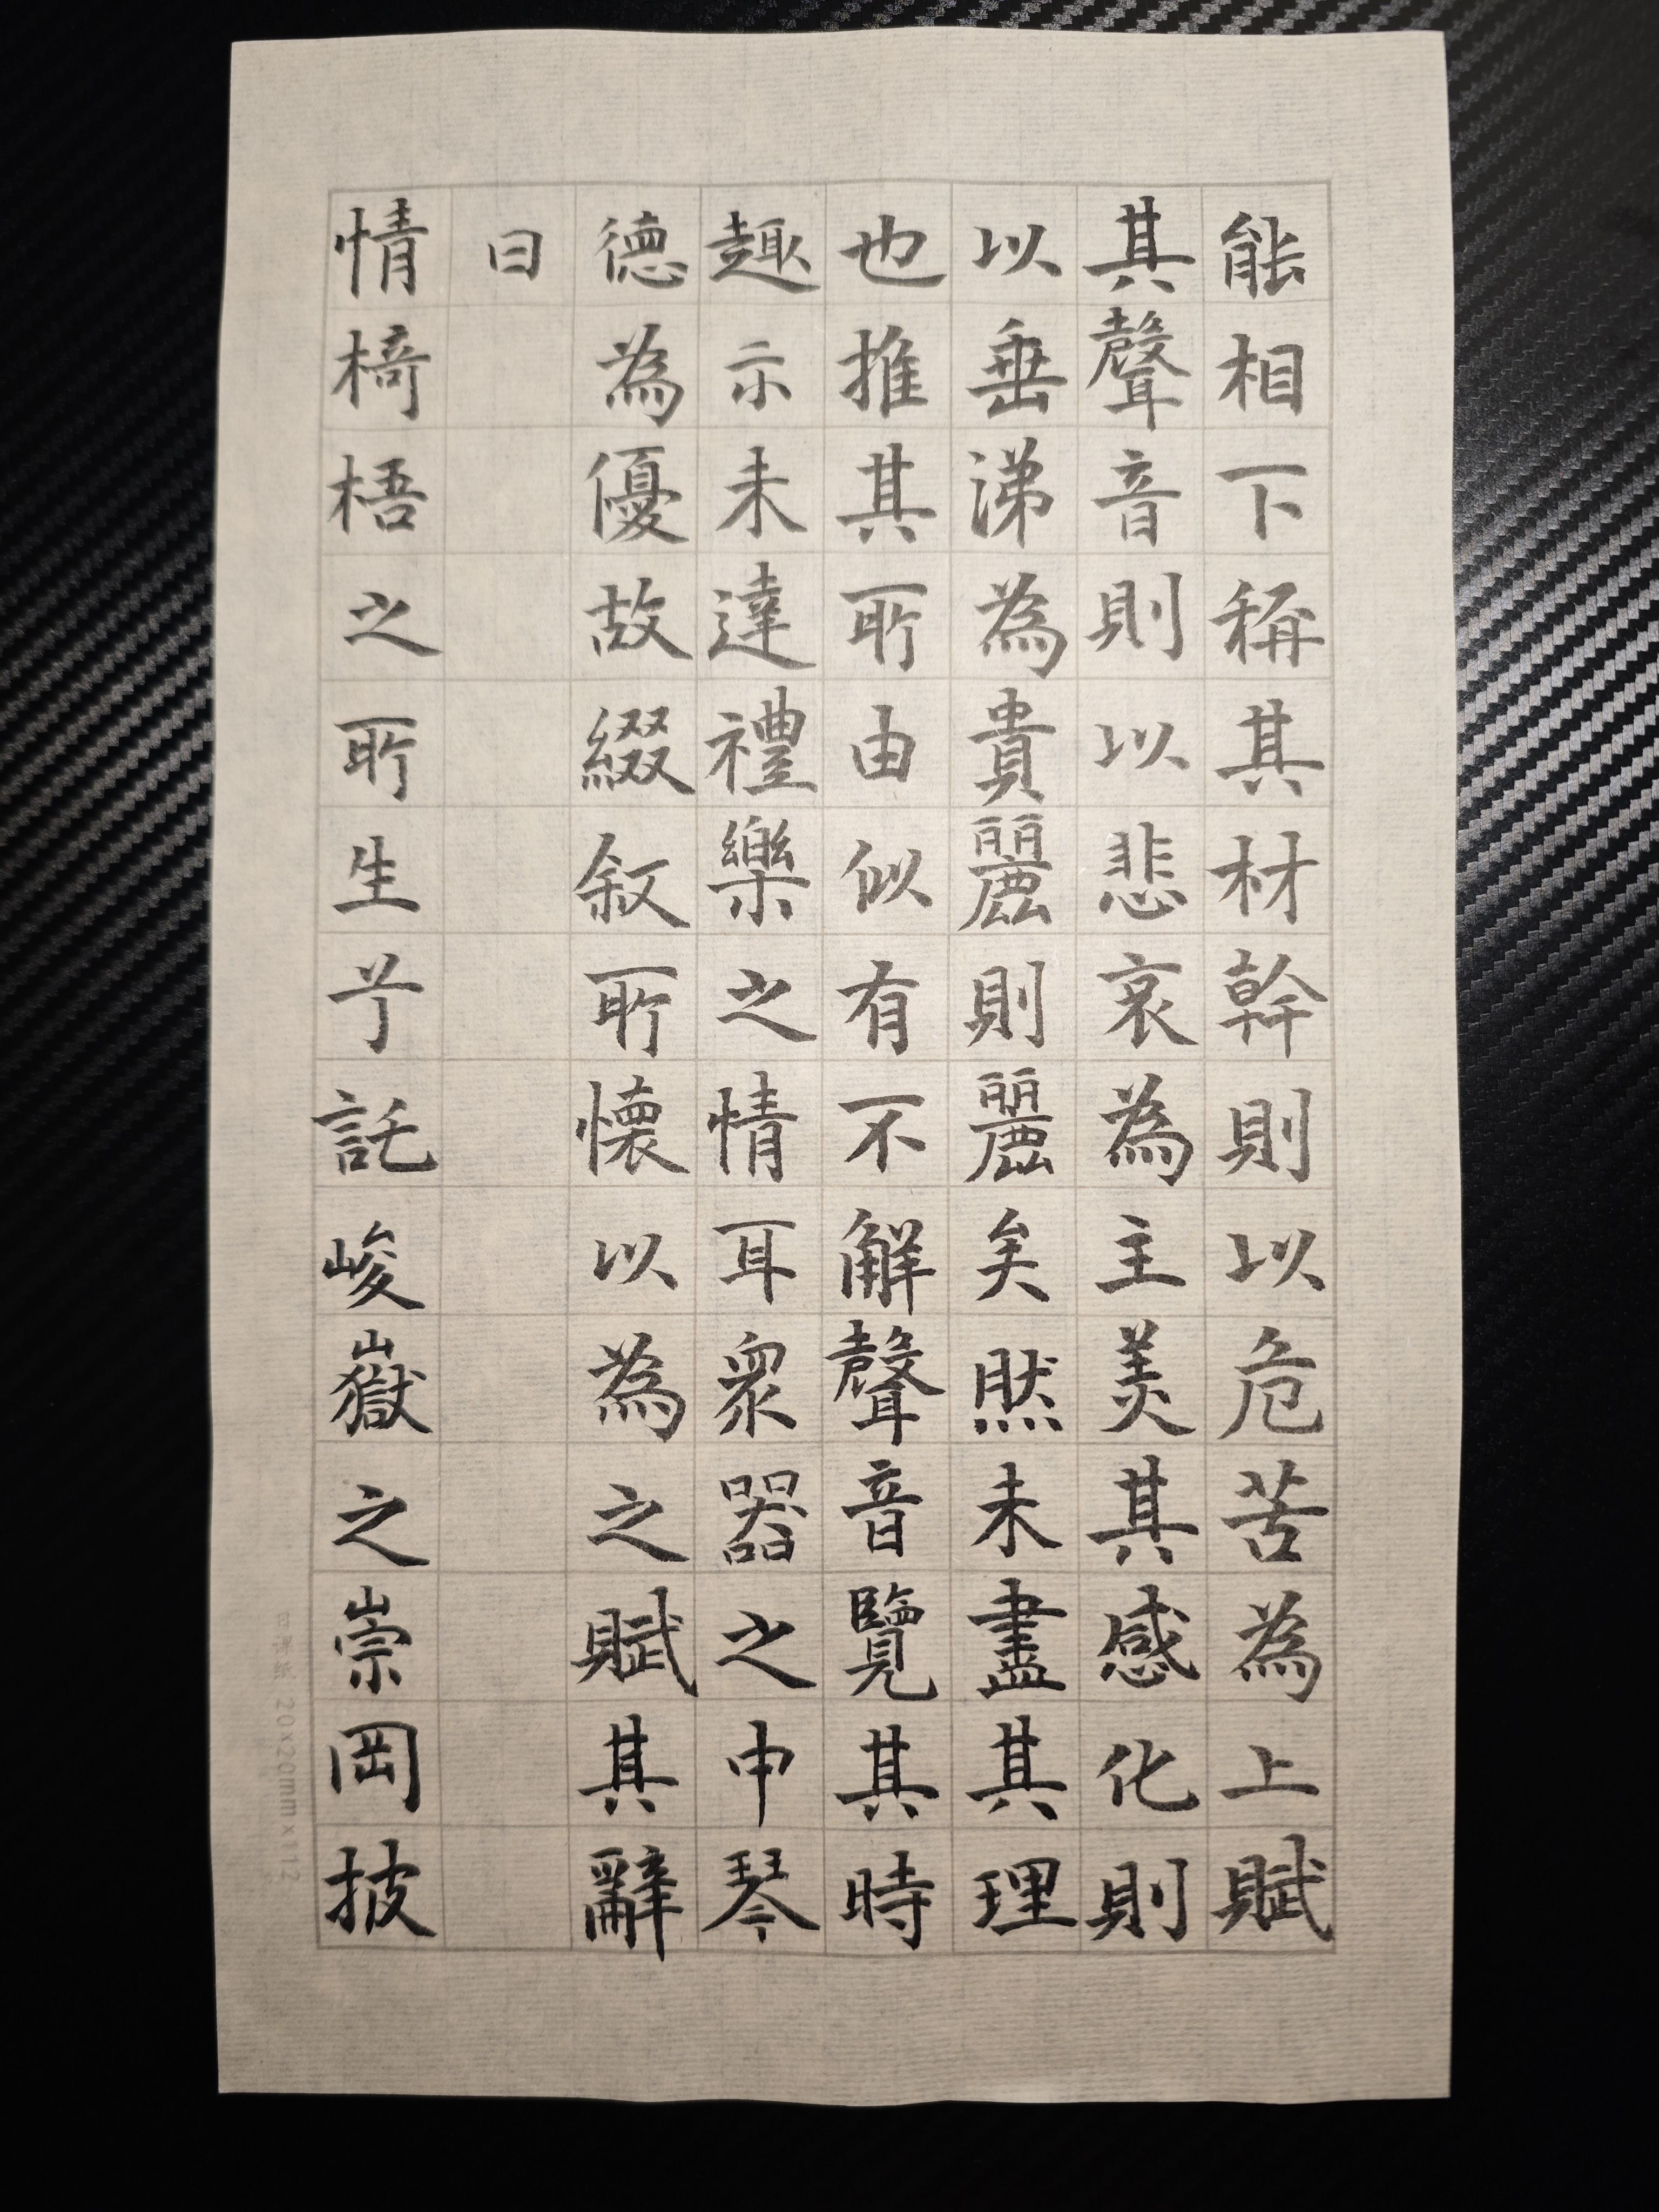 能相下稱其材幹則以危苦為上賦
其聲音則以悲哀為主美其感化則
以垂涕為貴麗則麗矣然未盡其理
也推其所由似有不解聲音覽其時
趣示未達禮樂之情耳眾器之中琴
德為優故綴叙所懷以為之賦其辭
曰
情椅梧之所生兮託峻嶽之崇岡披